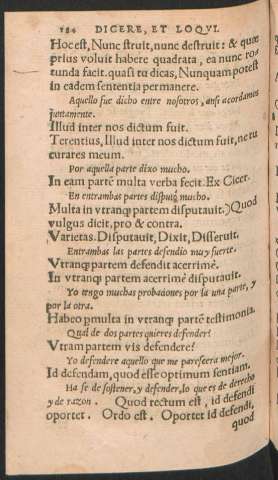 184 DICERE, ET LOQVI.
Hoc est, Nunc struit, nunc destruit: & quæ
prius voluit habere quadrata, ea nunc ro-
tunda facit. quasi tu dicas, Nunquam potest
in eadem sententia permanere.
Aquello fue dicho entre nosotros, ansi acordamos
juntamente.
Illud inter nos dictum fuit.
Terentius, Illud inter nos dictum fuit, ne tu
curares meum.
Por aquella parte dixo mucho.
In eam partē multa verba fecit. Ex Cicer.
En entrambas partes disputò mucho.
Multa in vtranq; partem disputauit. Quod
vulgus dicit, pro & contra.
Varietas. Disputauit, Dixit, Disseruit.
Entrambas las partes defendio muy fuerte.
Vtranq; partem defendit acerrimè.
In vtranq; partem acerrimè disputauit.
Yo tengo muchas probaciones por la una parte, y
por la otra.
Habeo pmulta in vtranq; partē testimonia.
Qual de dos partes quieres defender?
Vtram partem vis defendere?
Yo defendere aquello que me pareciera mejor.
Id defendam, quod esse optimum sentiam.
Ha se de sostener, y defender, lo que es de derecho
y de razon. Quod rectum est, id defendi
oportet. Ordo est. Oportet id defendi,
quod